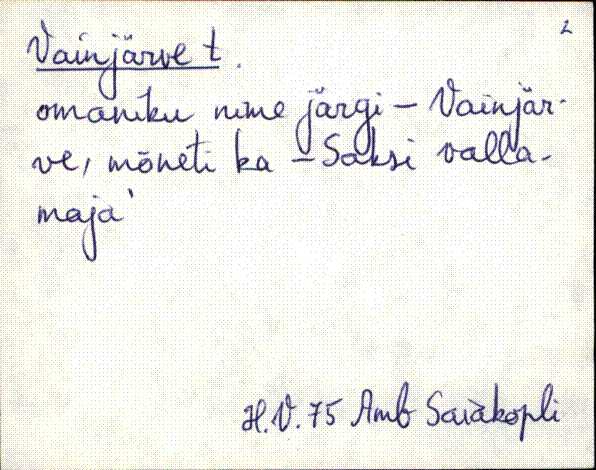 2
Vainjärve t.
omaniku nime järgi – Vainjär-
ve, mõneti ka – Saksi valla-
maja'
H.V. 75 Amb Saiakopli